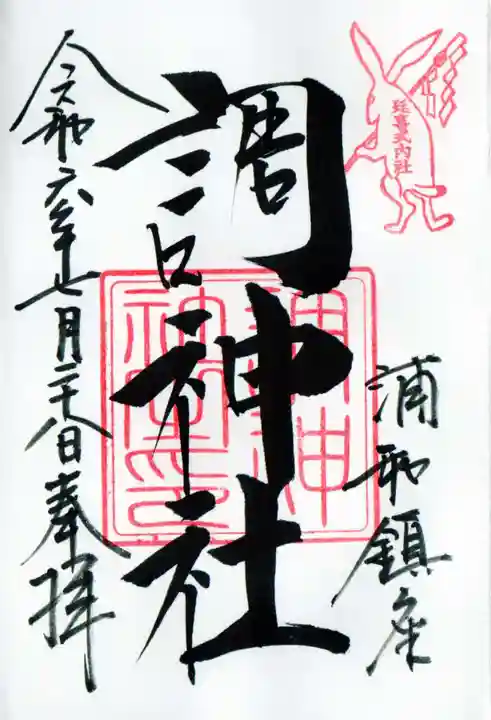 延喜式内社
浦和鎮座
調神社
令和六年七月二十八日奉拝